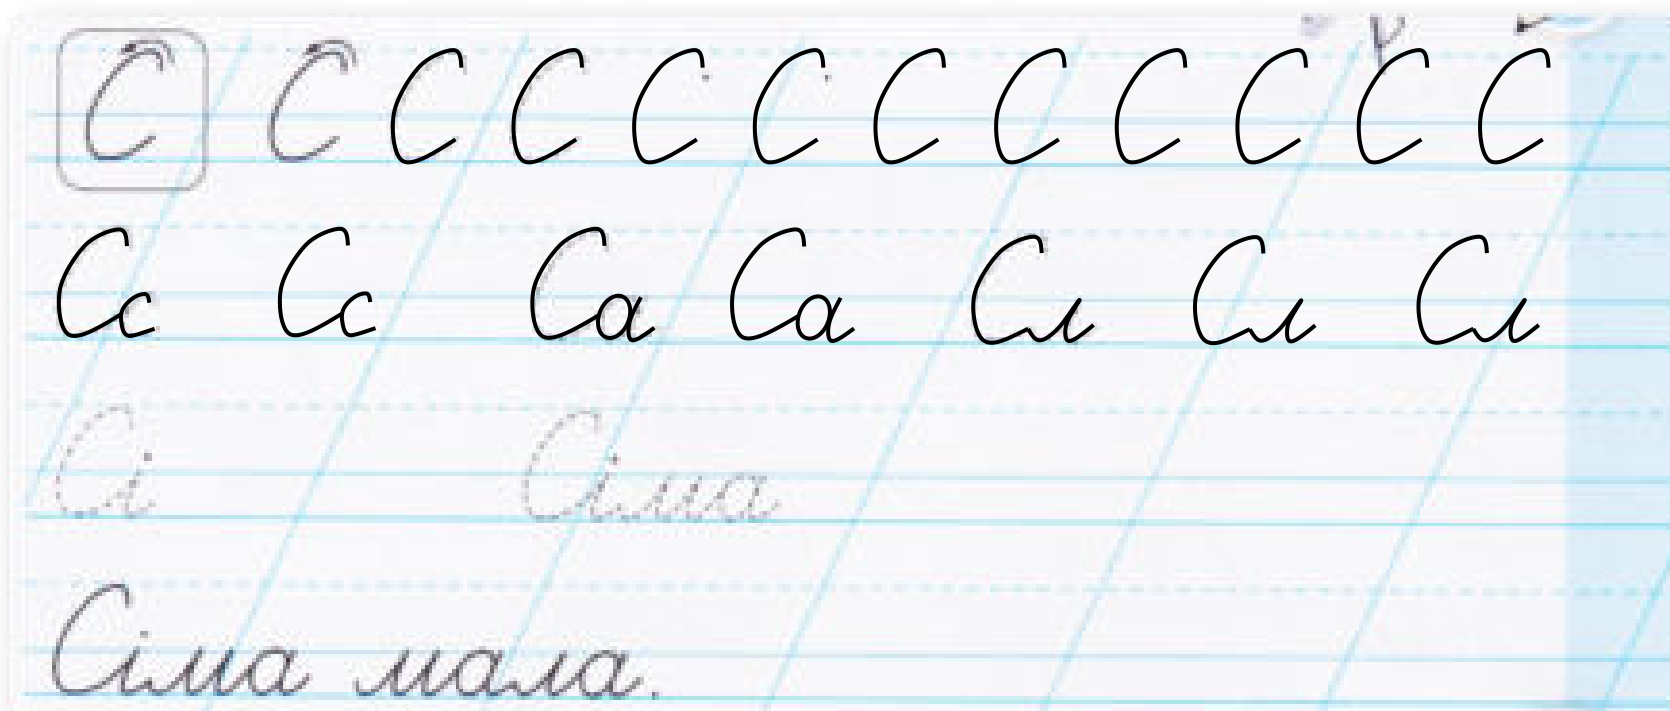 С С С С С С С С С С С С
Сс Сс Са Са Сл Сл Сл
Сі Сіма
Сіма мала.